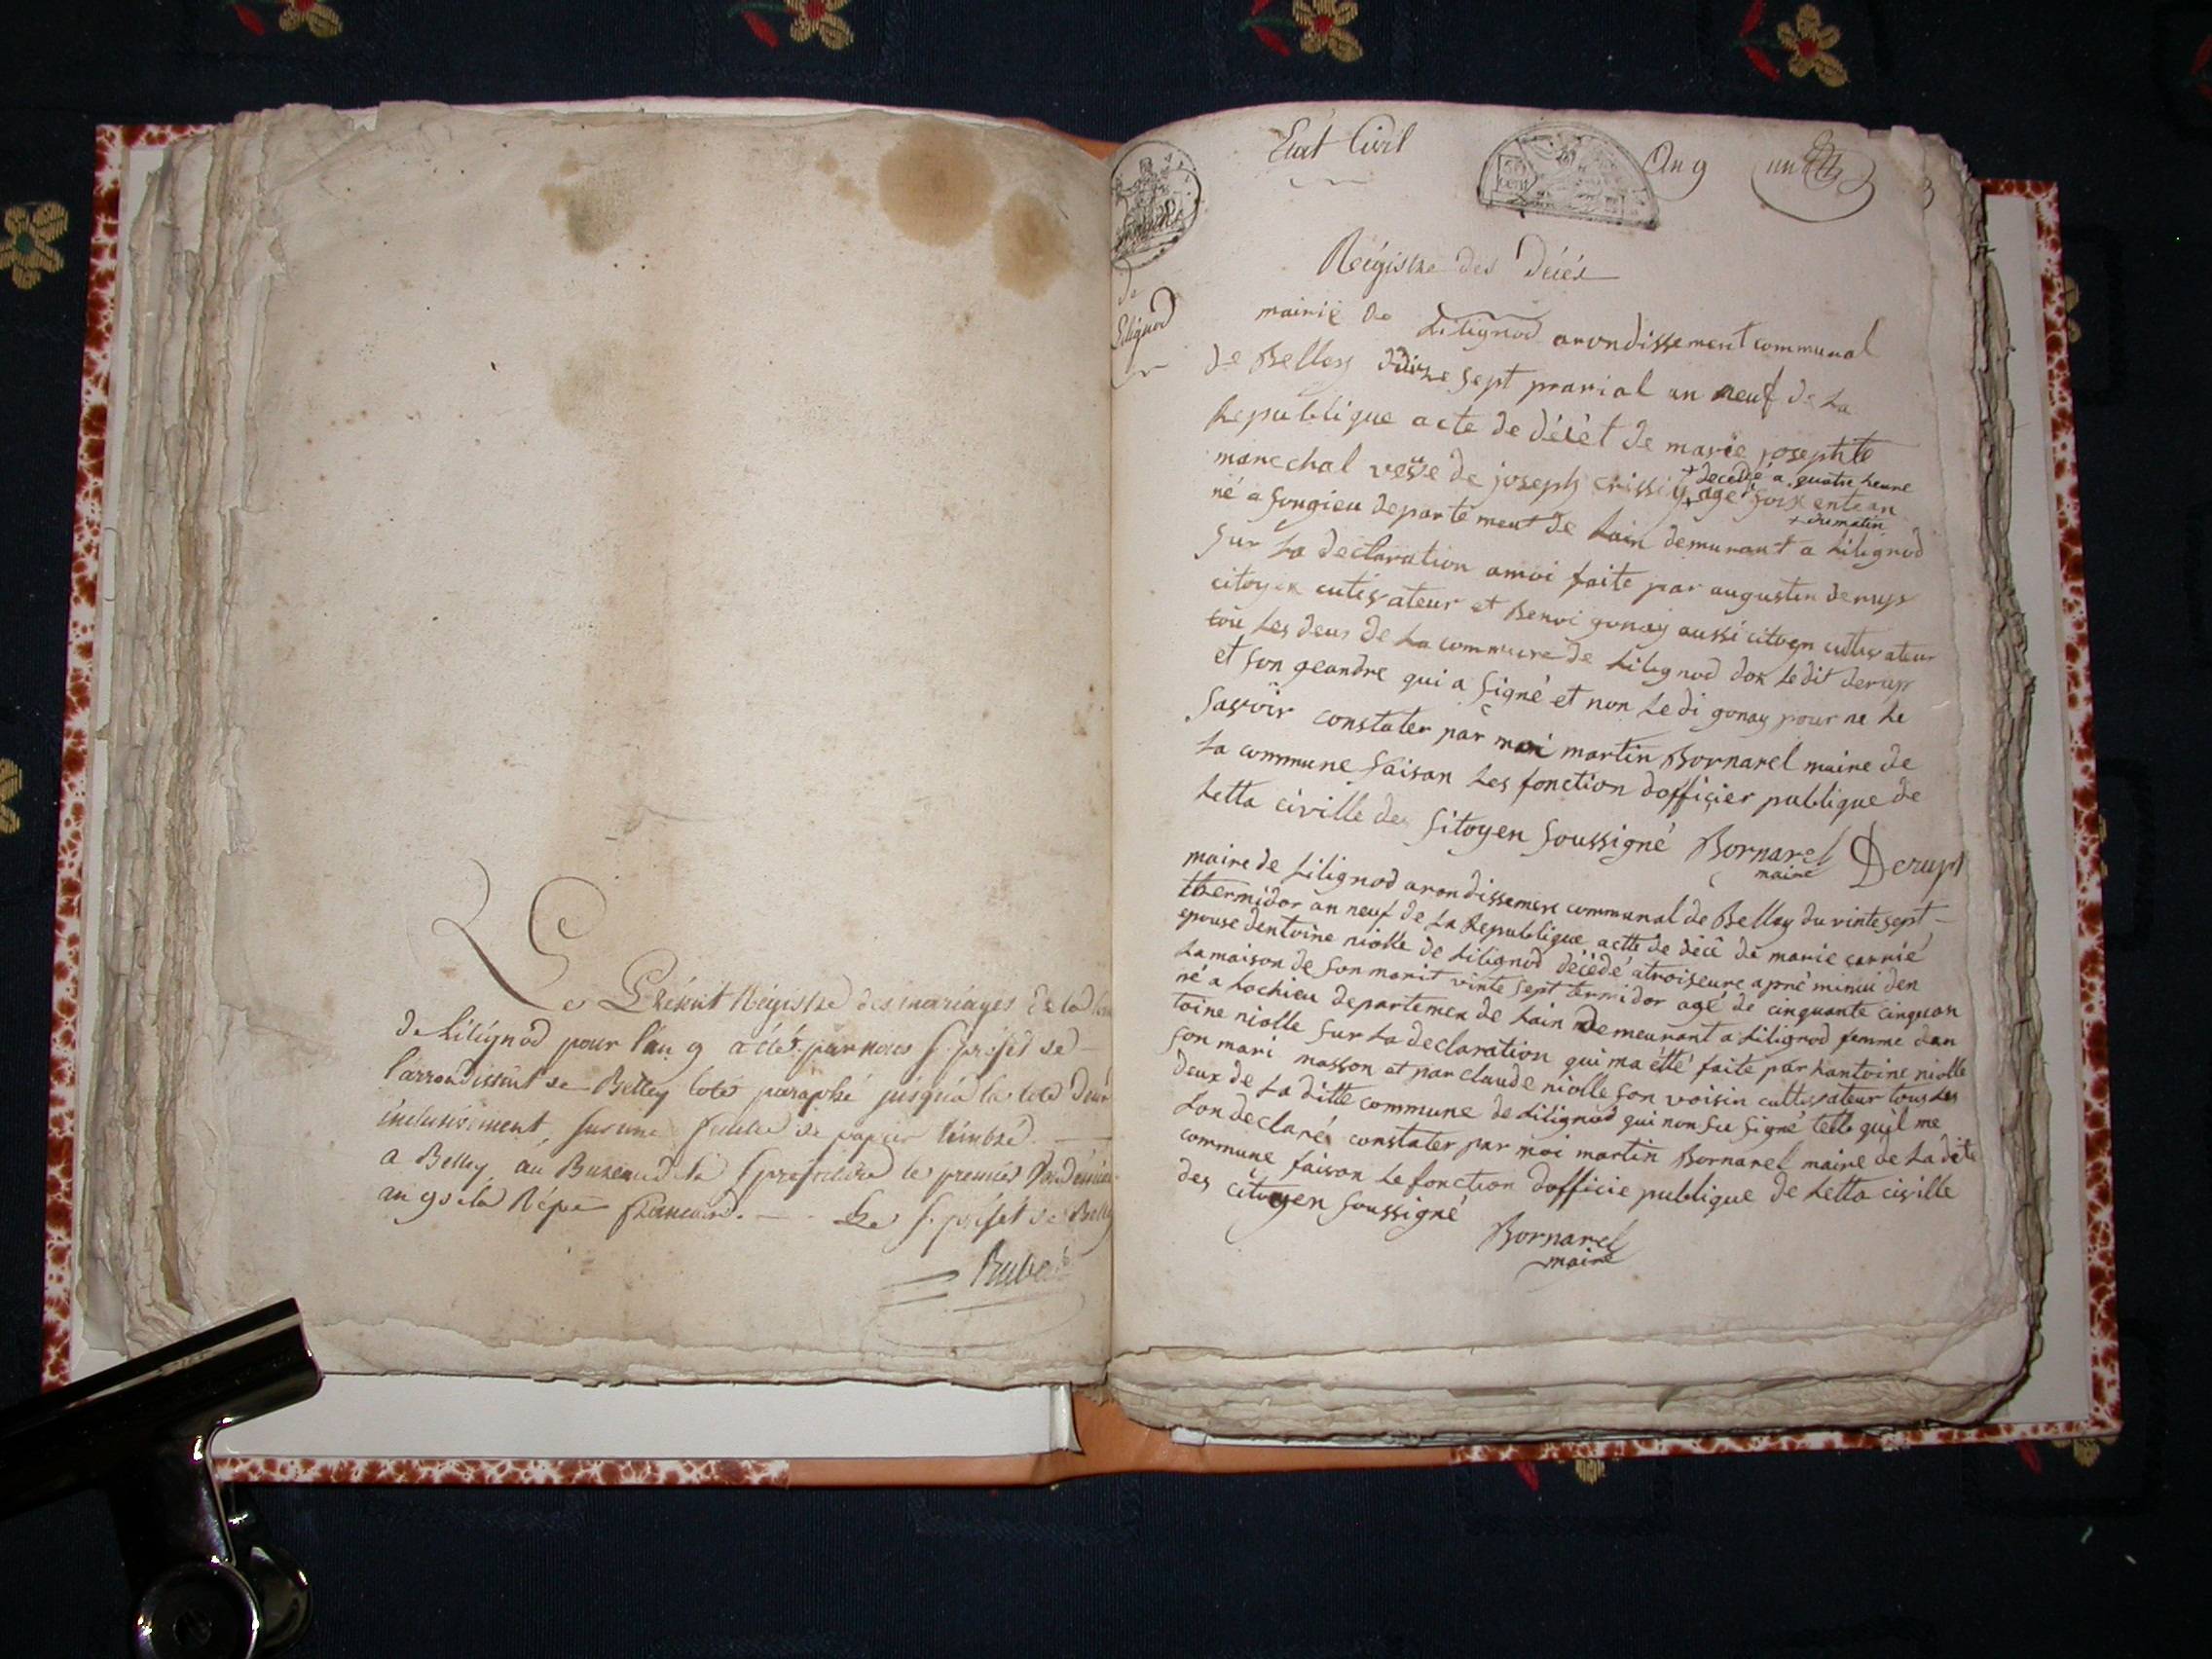 Le Présent Régistre des mariages de la
de Lilignod pour l'an 9 a été par nous s. préfet de
l'arrondissmt de Belley coté paraphé jusqu'a la cote deux
inclusivement, sur une feuille de papier timbré.
a Belley, au Bureau de la s préfecture le premier Vendémiaire
an 9 de la Répe française. Le s. préfet de Belley
Etat Civil
50
cent
An 9
un
de
Lilignod
Régistre des décés
mairie de Lilignod arondissement communal
de Belley du dix sept prarial an neuf de La
Republique acte de décêt de marie josephte
marechal veuve de joseph crissiy + agé soixente an
+ decedé a quatre heure
+ du matin
né a songieu departement de Lain demurant a Lilignod
sur La declaration amoi faite par augustin derup
citoyen cutivateur et Benoi gonay aussi citoyen cultivateur
tou Les deus de La commure de Lilignod don Ledit derup
et son geandre qui a signé et non Ledi gonay pour ne Le
savoir constater par moi martin Bornarel maire de
La commune faisan Les fonction dofficier publique de
Letta civille des sitoyen soussigné Bornarel Derupt
maire
maire de Lilignod arondissemen communal de Belley du vinte sept
thermidor an neuf de La Republique actte de décé de marie carrié
epouse dentoine niolle de Lilignod décédé a troiseure apré minui den
La maison de son marit vinte sept termidor agé de cinquante cinquan
né a Lochieu departemen de Lain demeurant a Lilignod femme dan
toine niolle sur La declaration qui ma étté faite par Lantoine niolle
son mari masson et par claude niolle son voisin cultivateur tous Les
deux de La ditte commune de Lilignod qui non su signé telle quil me
Lon declaré constater par moi martin Bornarel maire de La dite
commune faison Le fonction dofficie publique de Letta civille
des citoyen soussigné
Bornarel
maire